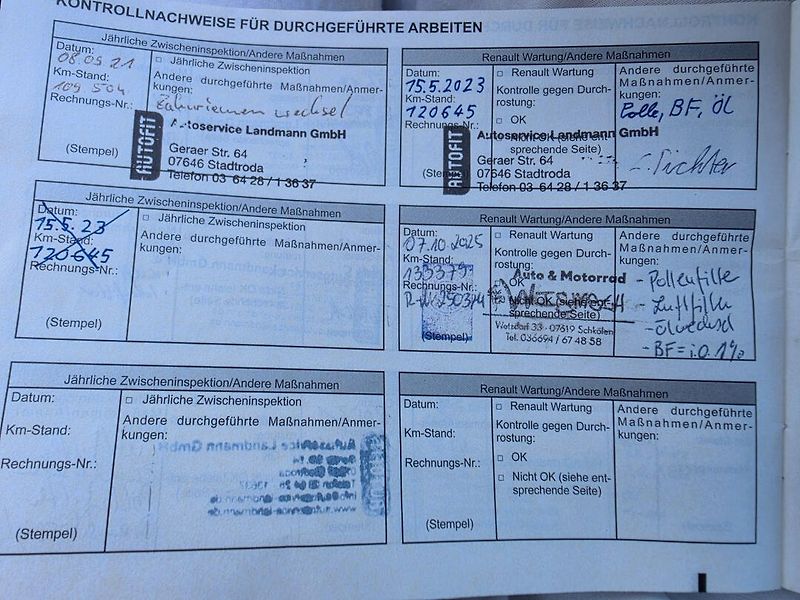 KONTROLLNACHWEISE FÜR DURCHGEFÜHRTE ARBEITEN
Jährliche Zwischeninspektion/Andere Maßnahmen
Datum:
08.09.21
Km-Stand:
109 504
Rechnungs-Nr.:
(Stempel)
□ Jährliche Zwischeninspektion
Andere durchgeführte Maßnahmen/Anmer-
kungen:
Zahnriemen wechsel
AUTOFIT
Autoservice Landmann GmbH
Geraer Str. 64
07646 Stadtroda
Telefon 03 64 28 / 1 36 37
Renault Wartung/Andere Maßnahmen
Datum:
15.5.2023
Km-Stand:
120645
Rechnungs-Nr.:
□ Renault Wartung
Kontrolle gegen Durch-
rostung:
□ OK
Nicht OK (siehe ent-
sprechende Seite)
Andere durchgeführte
Maßnahmen/Anmer-
kungen:
BF, Öl
AUTOFIT
Autoservice Landmann GmbH
Geraer Str. 64
07646 Stadtroda
Telefon 03 64 28 / 1 36 37
Jährliche Zwischeninspektion/Andere Maßnahmen
Datum:
15.5.23
Km-Stand:
120645
Rechnungs-Nr.:
(Stempel)
□ Jährliche Zwischeninspektion
Andere durchgeführte Maßnahmen/Anmer-
kungen:
Renault Wartung/Andere Maßnahmen
Datum:
07.10.2025
Km-Stand:
133379
Rechnungs-Nr.:
(Stempel)
□ Renault Wartung
Kontrolle gegen Durch-
rostung:
OK
Nicht OK (siehe ent-
sprechende Seite)
Auto & Motorrad
Wetzdorf 33 - 07619 Schkölen
Tel. 036694 / 67 48 58
Andere durchgeführte
Maßnahmen/Anmer-
kungen:
- Pollenfilter
- Luftfilter
- Ölwechsel
- BF = i.O. 1%
Jährliche Zwischeninspektion/Andere Maßnahmen
Datum:
Km-Stand:
Rechnungs-Nr.:
(Stempel)
□ Jährliche Zwischeninspektion
Andere durchgeführte Maßnahmen/Anmer-
kungen:
Renault Wartung/Andere Maßnahmen
Datum:
Km-Stand:
Rechnungs-Nr.:
(Stempel)
□ Renault Wartung
Kontrolle gegen Durch-
rostung:
□ OK
□ Nicht OK (siehe ent-
sprechende Seite)
Andere durchgeführte
Maßnahmen/Anmer-
kungen: